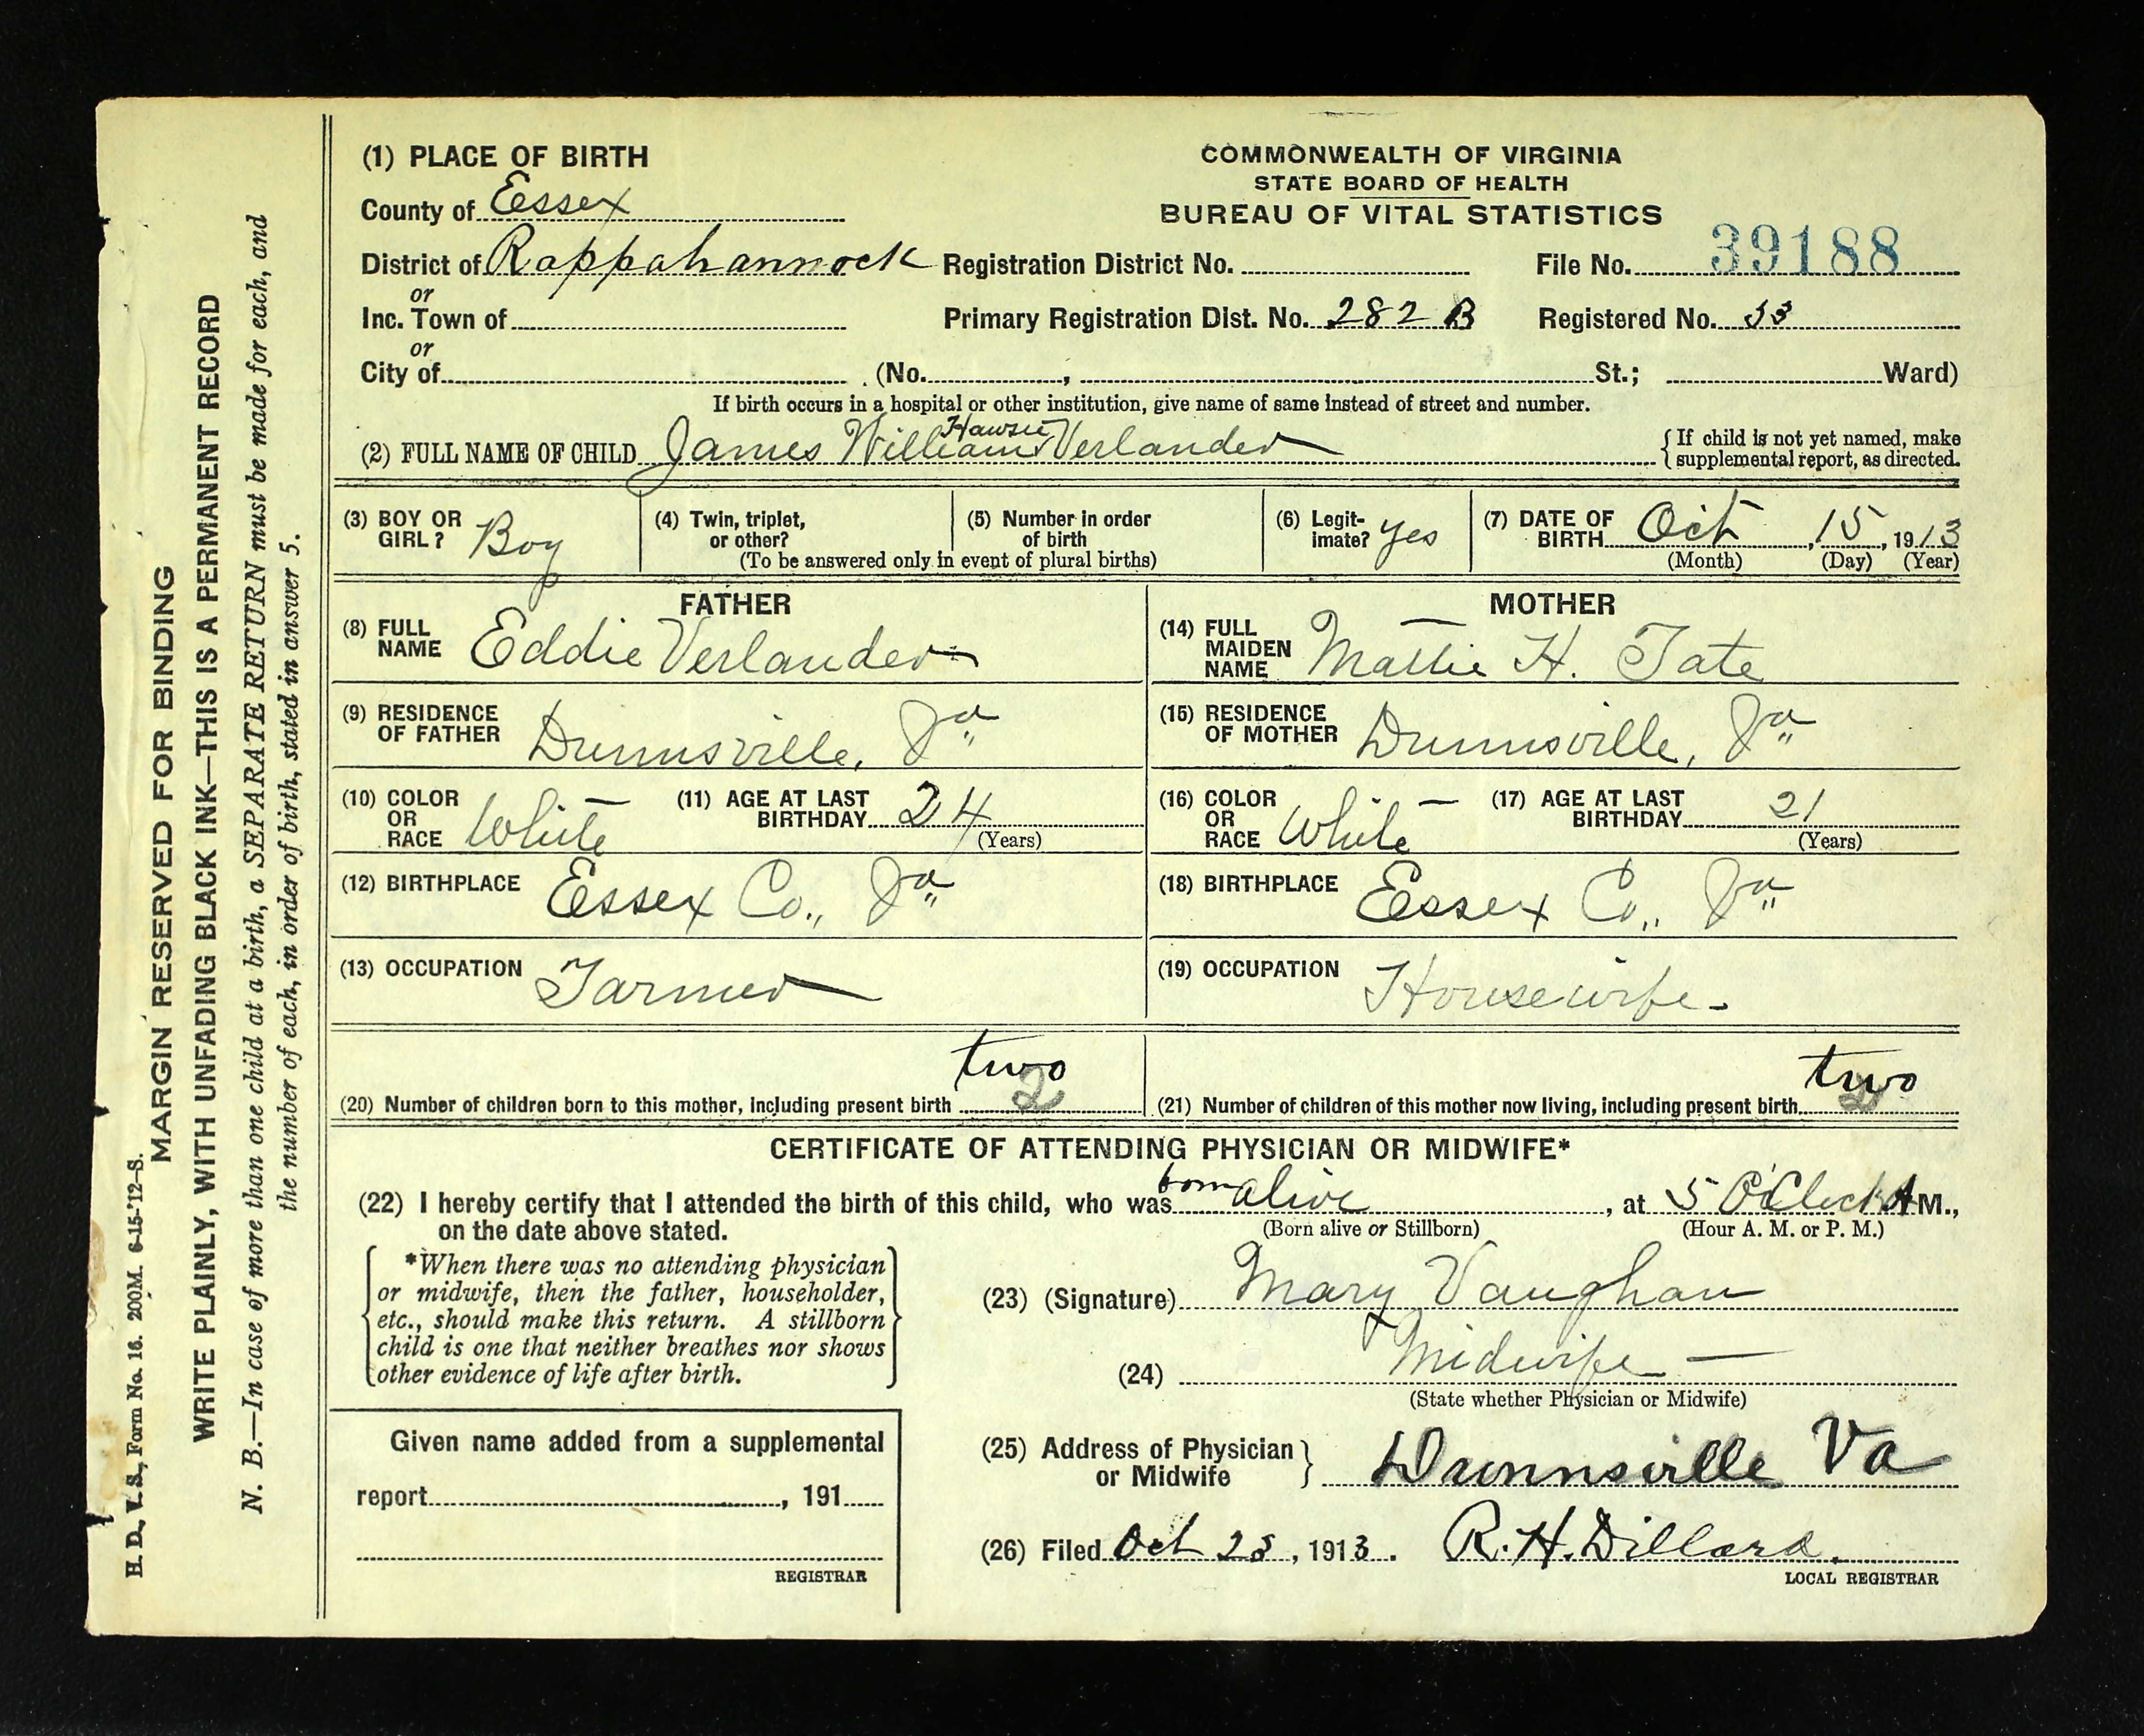 (1) PLACE OF BIRTH
County of Essex
District of Rappahannock
or
Inc. Town of
or
City of (No. , St.; Ward)
COMMONWEALTH OF VIRGINIA
STATE BOARD OF HEALTH
BUREAU OF VITAL STATISTICS
Registration District No. File No. 39188
Primary Registration Dist. No. 282 B Registered No. 53
If birth occurs in a hospital or other institution, give name of same instead of street and number.
Hawsie
(2) FULL NAME OF CHILD James William Verlander
{ If child is not yet named, make
supplemental report, as directed.
(3) BOY OR GIRL? Boy
(4) Twin, triplet, or other?
(5) Number in order of birth
(To be answered only in event of plural births)
(6) Legitimate? yes
(7) DATE OF BIRTH Oct, 15, 1913
(Month) (Day) (Year)
FATHER
(8) FULL NAME Eddie Verlander
(9) RESIDENCE OF FATHER Dunnsville, Va
(10) COLOR OR RACE White
(11) AGE AT LAST BIRTHDAY 24
(Years)
(12) BIRTHPLACE Essex Co., Va
(13) OCCUPATION Farmer
MOTHER
(14) FULL MAIDEN NAME Mattie H. Tate
(15) RESIDENCE OF MOTHER Dunnsville, Va
(16) COLOR OR RACE White
(17) AGE AT LAST BIRTHDAY 21
(Years)
(18) BIRTHPLACE Essex Co., Va
(19) OCCUPATION Housewife
two
(20) Number of children born to this mother, including present birth 2
two
(21) Number of children of this mother now living, including present birth 2
CERTIFICATE OF ATTENDING PHYSICIAN OR MIDWIFE*
(22) I hereby certify that I attended the birth of this child, who was born alive, at 5 O'Clock A M.,
(Born alive or Stillborn) (Hour A. M. or P. M.)
on the date above stated.
*When there was no attending physician
or midwife, then the father, householder,
etc., should make this return. A stillborn
child is one that neither breathes nor shows
other evidence of life after birth.
(23) (Signature) Mary Vaughan
(24) Midwife
(State whether Physician or Midwife)
(25) Address of Physician or Midwife } Dunnsville Va
(26) Filed Oct 25, 1913. R. H. Dillard.
LOCAL REGISTRAR
Given name added from a supplemental
report , 191
REGISTRAR
H. D., V. S., Form No. 16. 200M. 6-15-'12-S.
MARGIN RESERVED FOR BINDING
WRITE PLAINLY, WITH UNFADING BLACK INK—THIS IS A PERMANENT RECORD
N. B.—In case of more than one child at a birth, a SEPARATE RETURN must be made for each, and
the number of each, in order of birth, stated in answer 5.